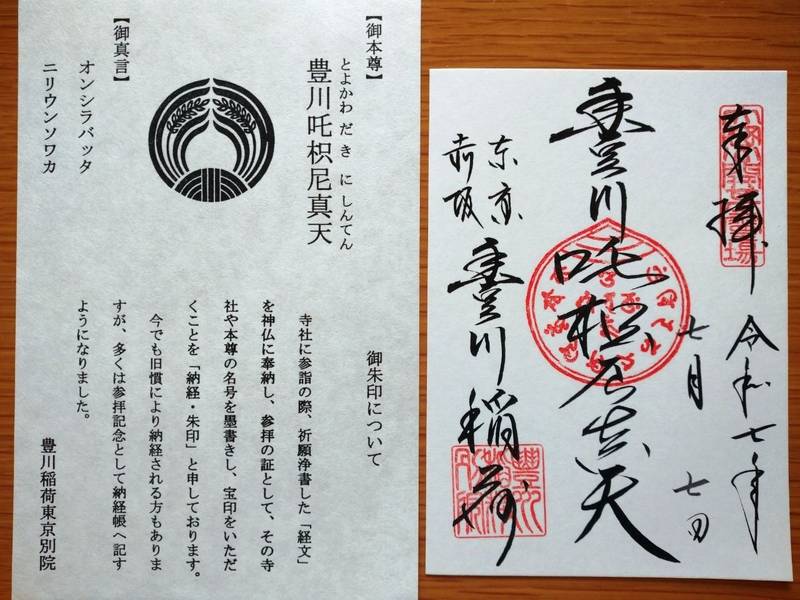 【御本尊】
とよかわ だ き に しんてん
豊川吒枳尼真天
【御真言】
オンシラバッタ
ニリウンソワカ
御朱印について
寺社に参詣の際、祈願浄書した「経文」
を神仏に奉納し、参拝の証として、その寺
社や本尊の名号を墨書きし、宝印をいただ
くことを「納経・朱印」と申しております。
今でも旧慣により納経される方もありま
すが、多くは参拝記念として納経帳へ記す
ようになりました。
豊川稲荷東京別院
奉拝
令和七年
七月 七日
豊川吒枳尼真天
東京
赤坂
豊川稲荷